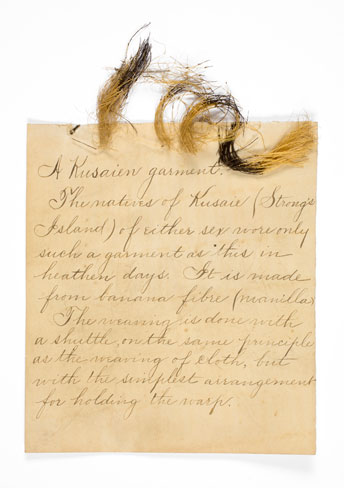 A Kusaien garment.
The natives of Kusaie (Strong's
Island) of either sex wore only
such a garment as this in
heathen days. It is made
from banana fibre (manilla)
The weaving is done with
a shuttle, on the same principle
as the weaving of cloth, but
with the simplest arrangement
for holding the warp.